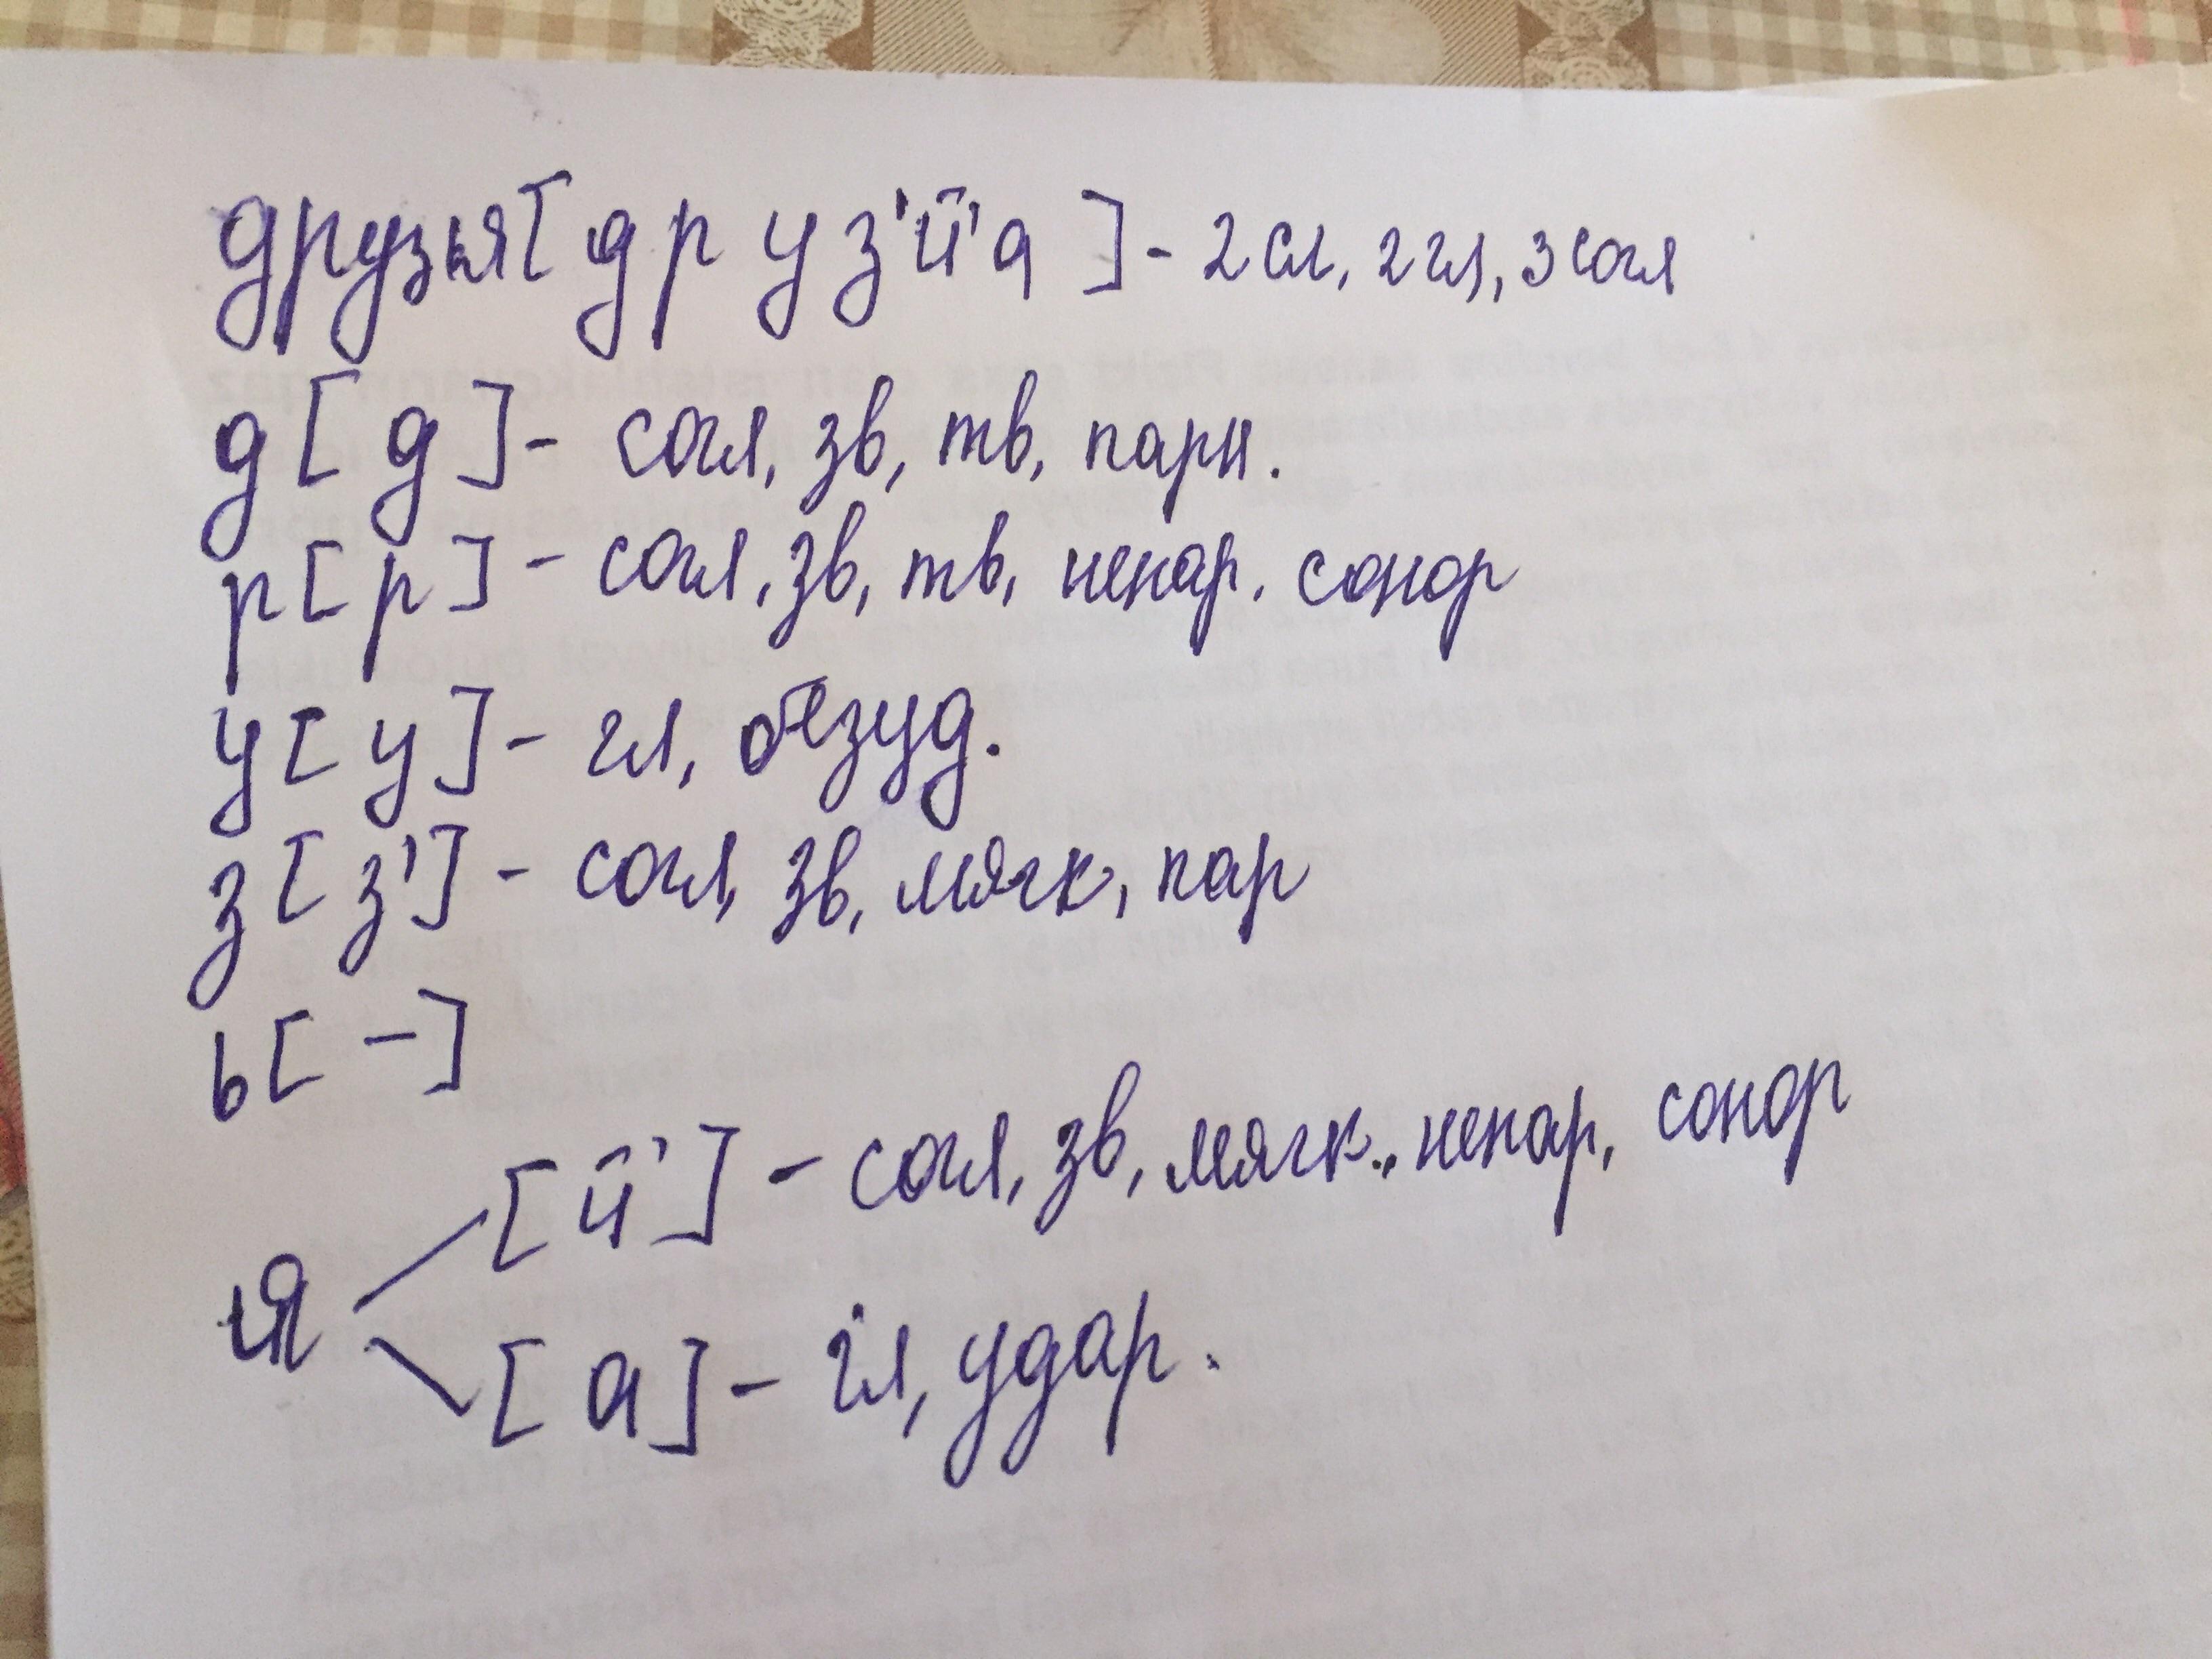 друзья [д р у з' й' а ] - 2 сл, 2 гл, 3 согл
д [ д ] - согл, зв, тв, парн.
р [ р ] - согл, зв, тв, непар. сонор
у [ у ] - гл, безуд.
з [ з' ] - согл, зв, мягк, пар
ь [ - ]
[ й' ] - согл, зв, мягк., непар, сонор
я
[ а ] - гл, удар.